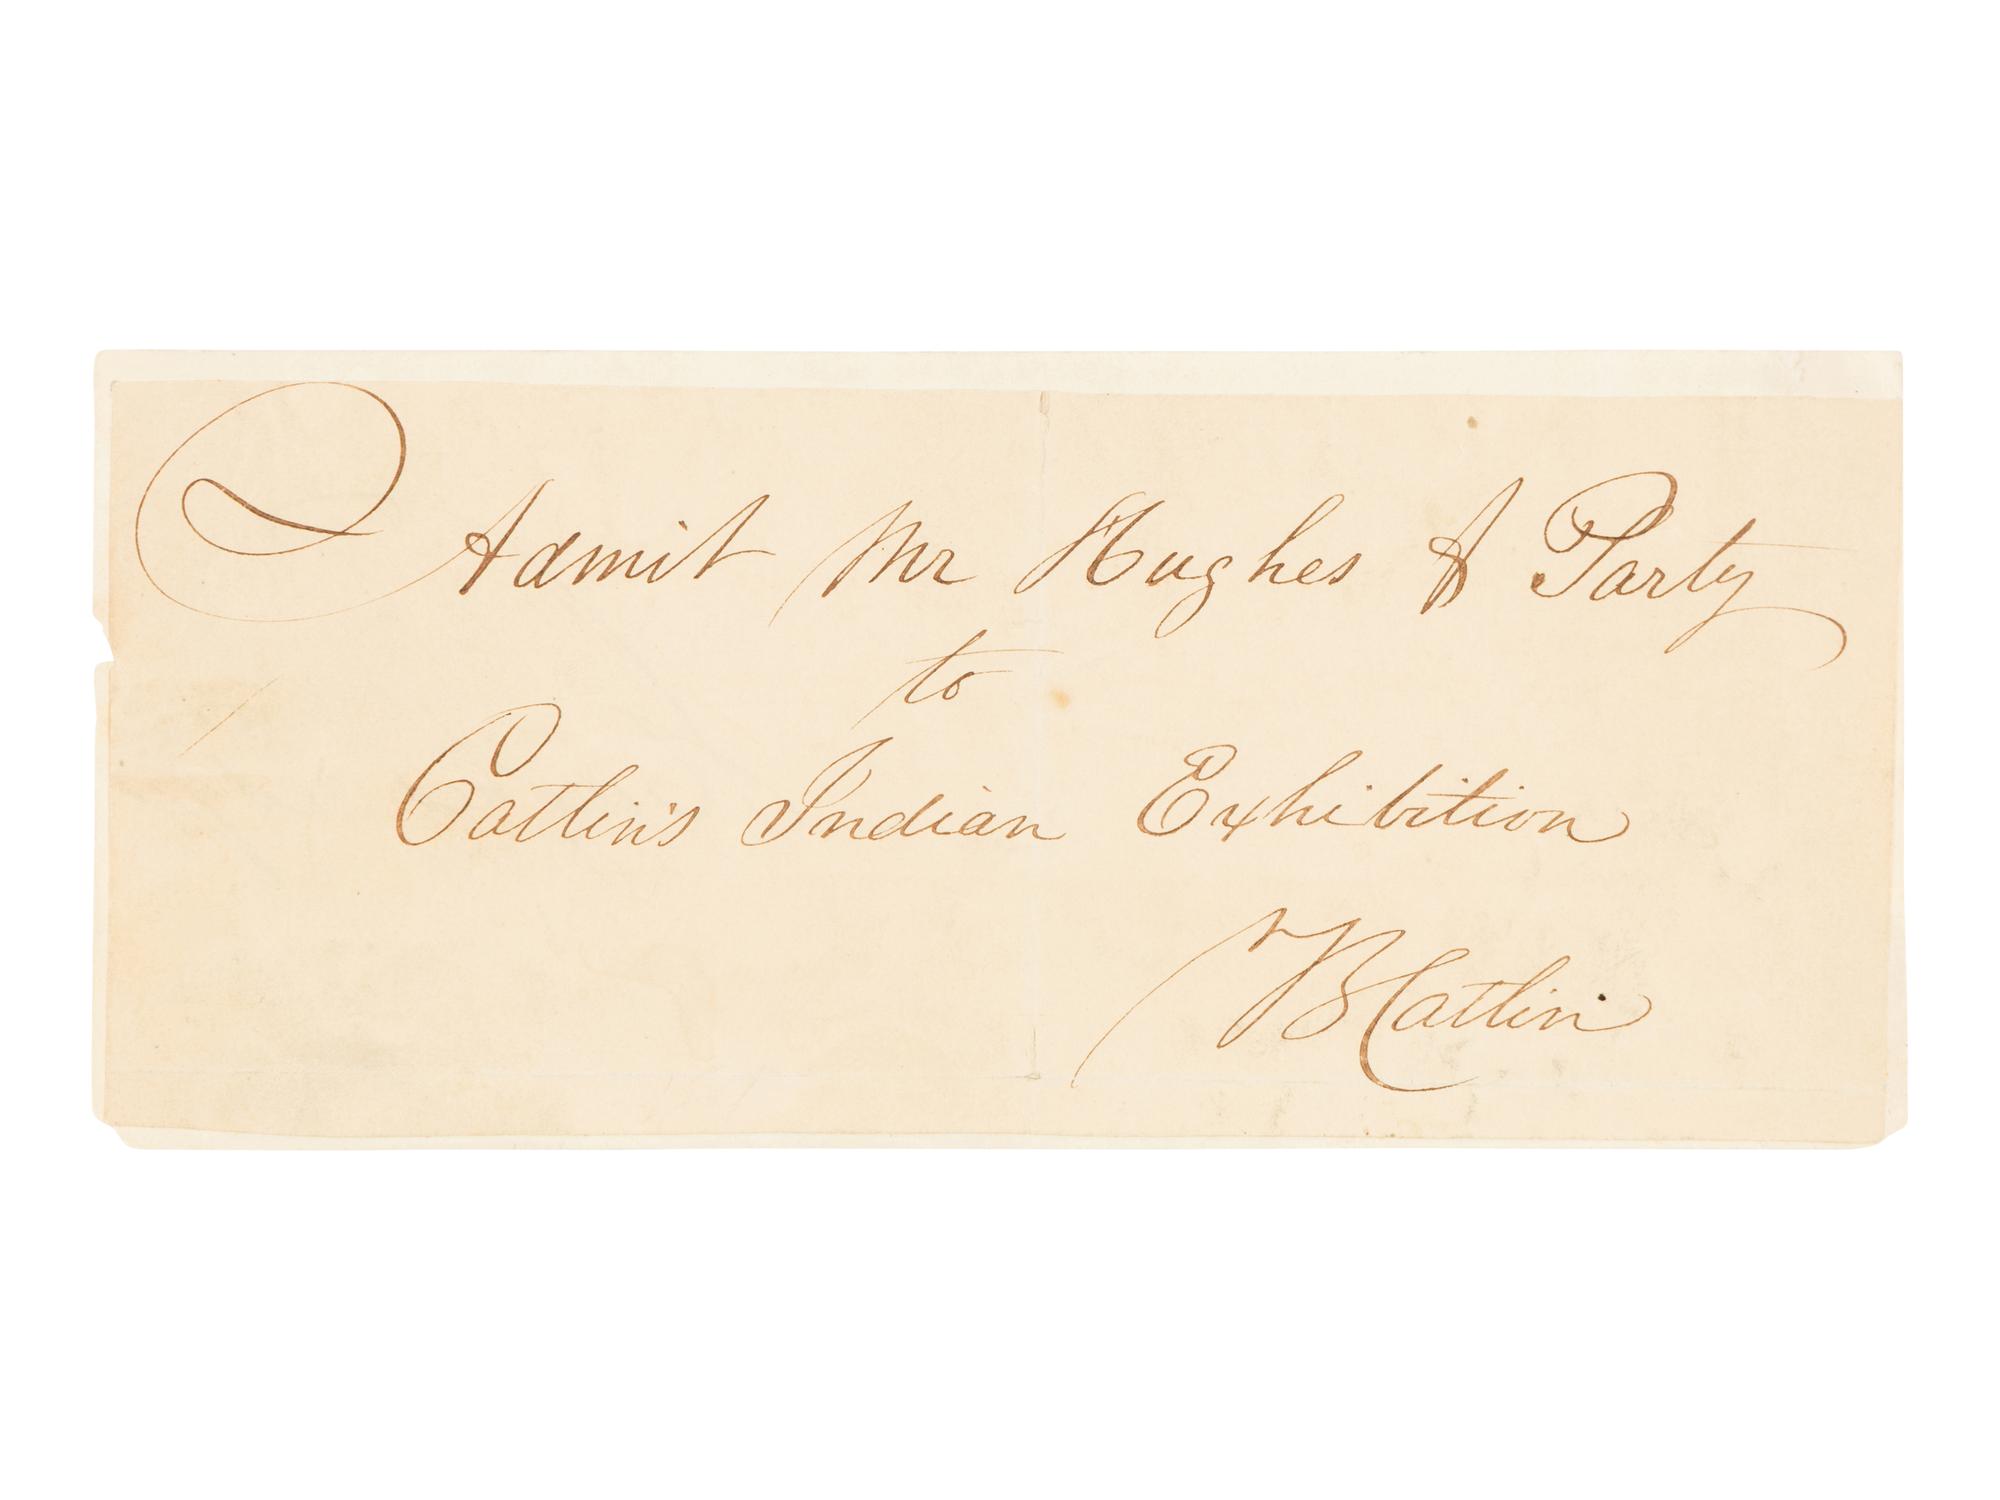 Admit Mr Hughes & Party
to
Catlin's Indian Exhibition
Catlin